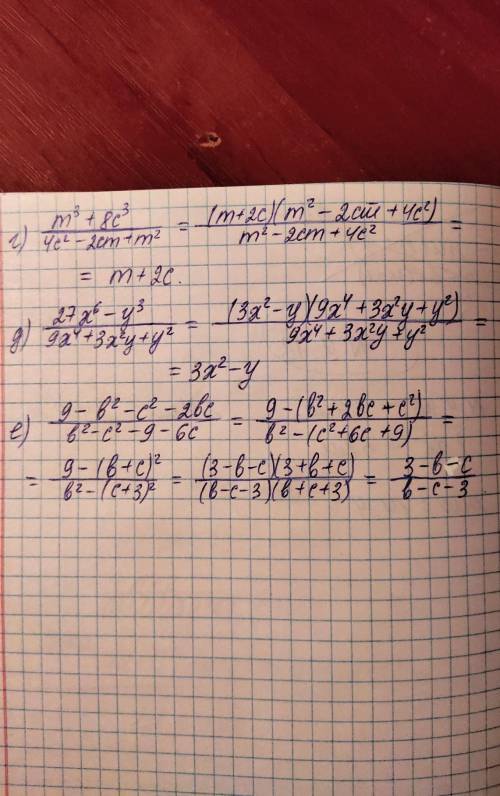 г) (m³ + 8c³)/(4c² - 2cm + m²) = (m+2c)(m² - 2cm + 4c²)/(m² - 2cm + 4c²) =
= m + 2c.
д) (27x⁶ - y³)/(9x⁴ + 3x²y + y²) = (3x² - y)(9x⁴ + 3x²y + y²)/(9x⁴ + 3x²y + y²) =
= 3x² - y
е) (9 - в² - c² - 2вc)/(в² - c² - 9 - 6c) = (9 - (в² + 2вc + c²))/(в² - (c² + 6c + 9)) =
= (9 - (в+c)²)/(в² - (c+3)²) = (3-в-c)(3+в+c)/(в-c-3)(в+c+3) = (3-в-c)/(в-c-3)